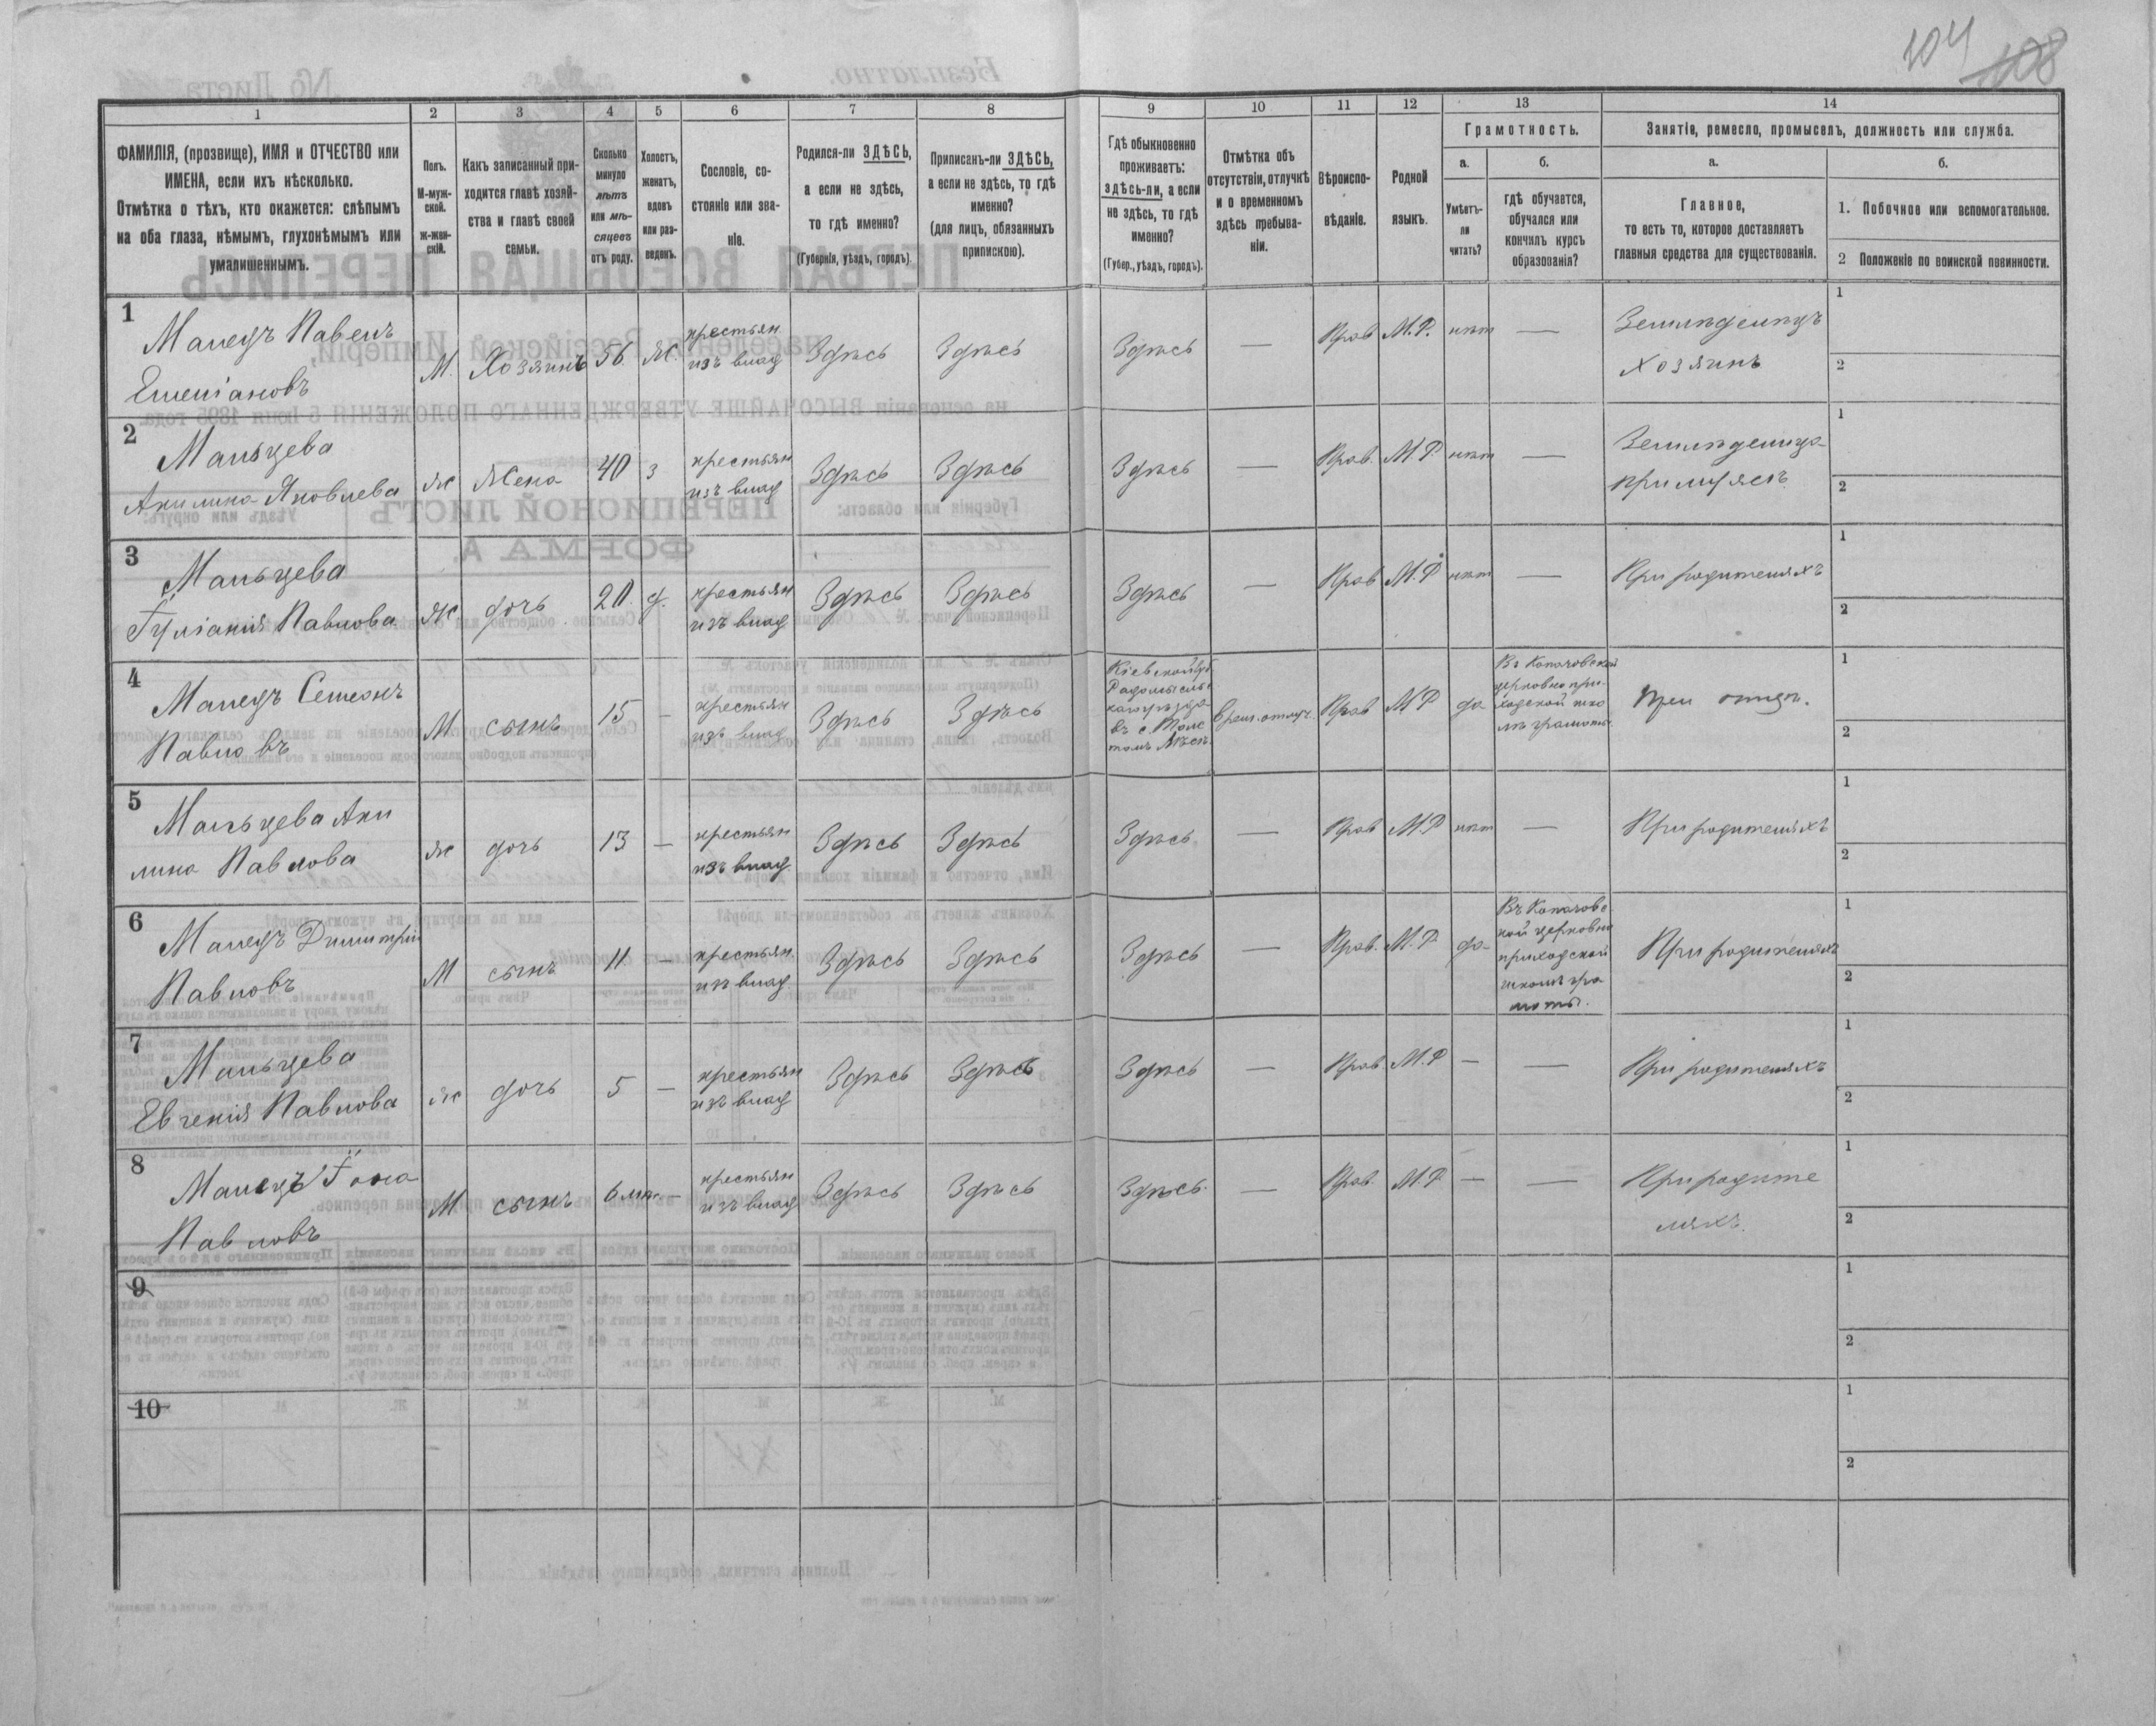 104 108
1 2 3 4 5 6 7 8 9 10 11 12 13 14
ФАМИЛІЯ, (прозвище), ИМЯ и ОТЧЕСТВО или
ИМЕНА, если ихъ нѣсколько.
Отмѣтка о тѣхъ, кто окажется: слѣпымъ
на оба глаза, нѣмымъ, глухонѣмымъ или
умалишеннымъ.
Полъ.
М-муж-
ской.
ж-жен-
скій.
Какъ записанный при-
ходится главѣ хозяй-
ства и главѣ своей
семьи.
Сколько
минуло
лѣтъ
или мѣ-
сяцевъ
отъ роду.
Холостъ,
женатъ,
вдовъ
или раз-
веденъ.
Сословіе, со-
стояніе или зва-
ніе.
Родился-ли ЗДѢСЬ,
а если не здѣсь,
то гдѣ именно?
(Губернія, уѣздъ, городъ).
Приписанъ-ли ЗДѢСЬ,
а если не здѣсь, то гдѣ
именно?
(для лицъ, обязанныхъ
припискою).
Гдѣ обыкновенно
проживаетъ:
здѣсь-ли, а если
не здѣсь, то гдѣ
именно?
(Губер., уѣздъ, городъ).
Отмѣтка объ
отсутствіи, отлучкѣ
и о временномъ
здѣсь пребыва-
ніи.
Вѣроиспо-
вѣданіе.
Родной
языкъ.
Грамотность.
а. б.
Умѣетъ-
ли
читать?
гдѣ обучается,
обучался или
кончилъ курсъ
образованія?
Занятіе, ремесло, промыселъ, должность или служба.
а. б.
Главное,
то есть то, которое доставляетъ
главныя средства для существованія.
1. Побочное или вспомогательное.
2 Положеніе по воинской повинности.
1
Малецъ Павелъ
Емеліановъ
М. Хозяинъ 56. Ж.
крестьян.
изъ влад
Здѣсь Здѣсь Здѣсь — Прав М.Р. нѣт —
Земледѣлецъ
хозяинъ
1
2
2
Мальцева
Акилина Яковлева
ж Жена 40 з
крестьян
изъ влад
Здѣсь Здѣсь Здѣсь — Прав. М.Р нѣт —
Земледѣлица
при мужѣ
1
2
3
Мальцева
Іуліанія Павлова
ж дочь 20. д.
крестьян
изъ влад
Здѣсь Здѣсь Здѣсь — Прав М.Р нѣт —
При родителяхъ
1
2
4
Малецъ Семеонъ
Павловъ
М сынъ 15 —
крестьян
изъ влад
Здѣсь Здѣсь
Кіевской губ
Радомысль
каго уѣзда
въ с. Толс
томъ Лѣсѣ
Врем. отлуч. Прав М Р да
Въ Копачовской
церковно при-
ходской шко
лѣ грамоты.
При отцѣ.
1
2
5
Мальцева Аки
лина Павлова
ж дочь 13 —
крестьян
изъ влад.
Здѣсь Здѣсь Здѣсь — Прав М.Р нѣт —
При родителяхъ
1
2
6
Малецъ Димитрій
Павловъ
М сынъ 11 —
крестьян.
изъ влад.
Здѣсь Здѣсь Здѣсь — Прав. М.Р. да
Въ Копачовс
кой церковно
приходской
школѣ гра
моты.
При родителяхъ
1
2
7
Мальцева
Евгенія Павлова
ж дочь 5 —
крестьян
изъ влад
Здѣсь Здѣсь Здѣсь — Прав. М.Р — —
При родителяхъ
1
2
8
Малецъ Іона
Павловъ
М сынъ 6 мѣс. —
крестьян
изъ влад
Здѣсь Здѣсь Здѣсь. — Прав. М.Р — —
При родите
ляхъ.
1
2
9
1
2
10
1
2